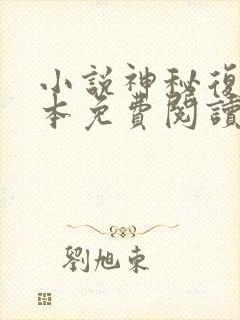 小說神秘復
本免費閱讀
劉旭東